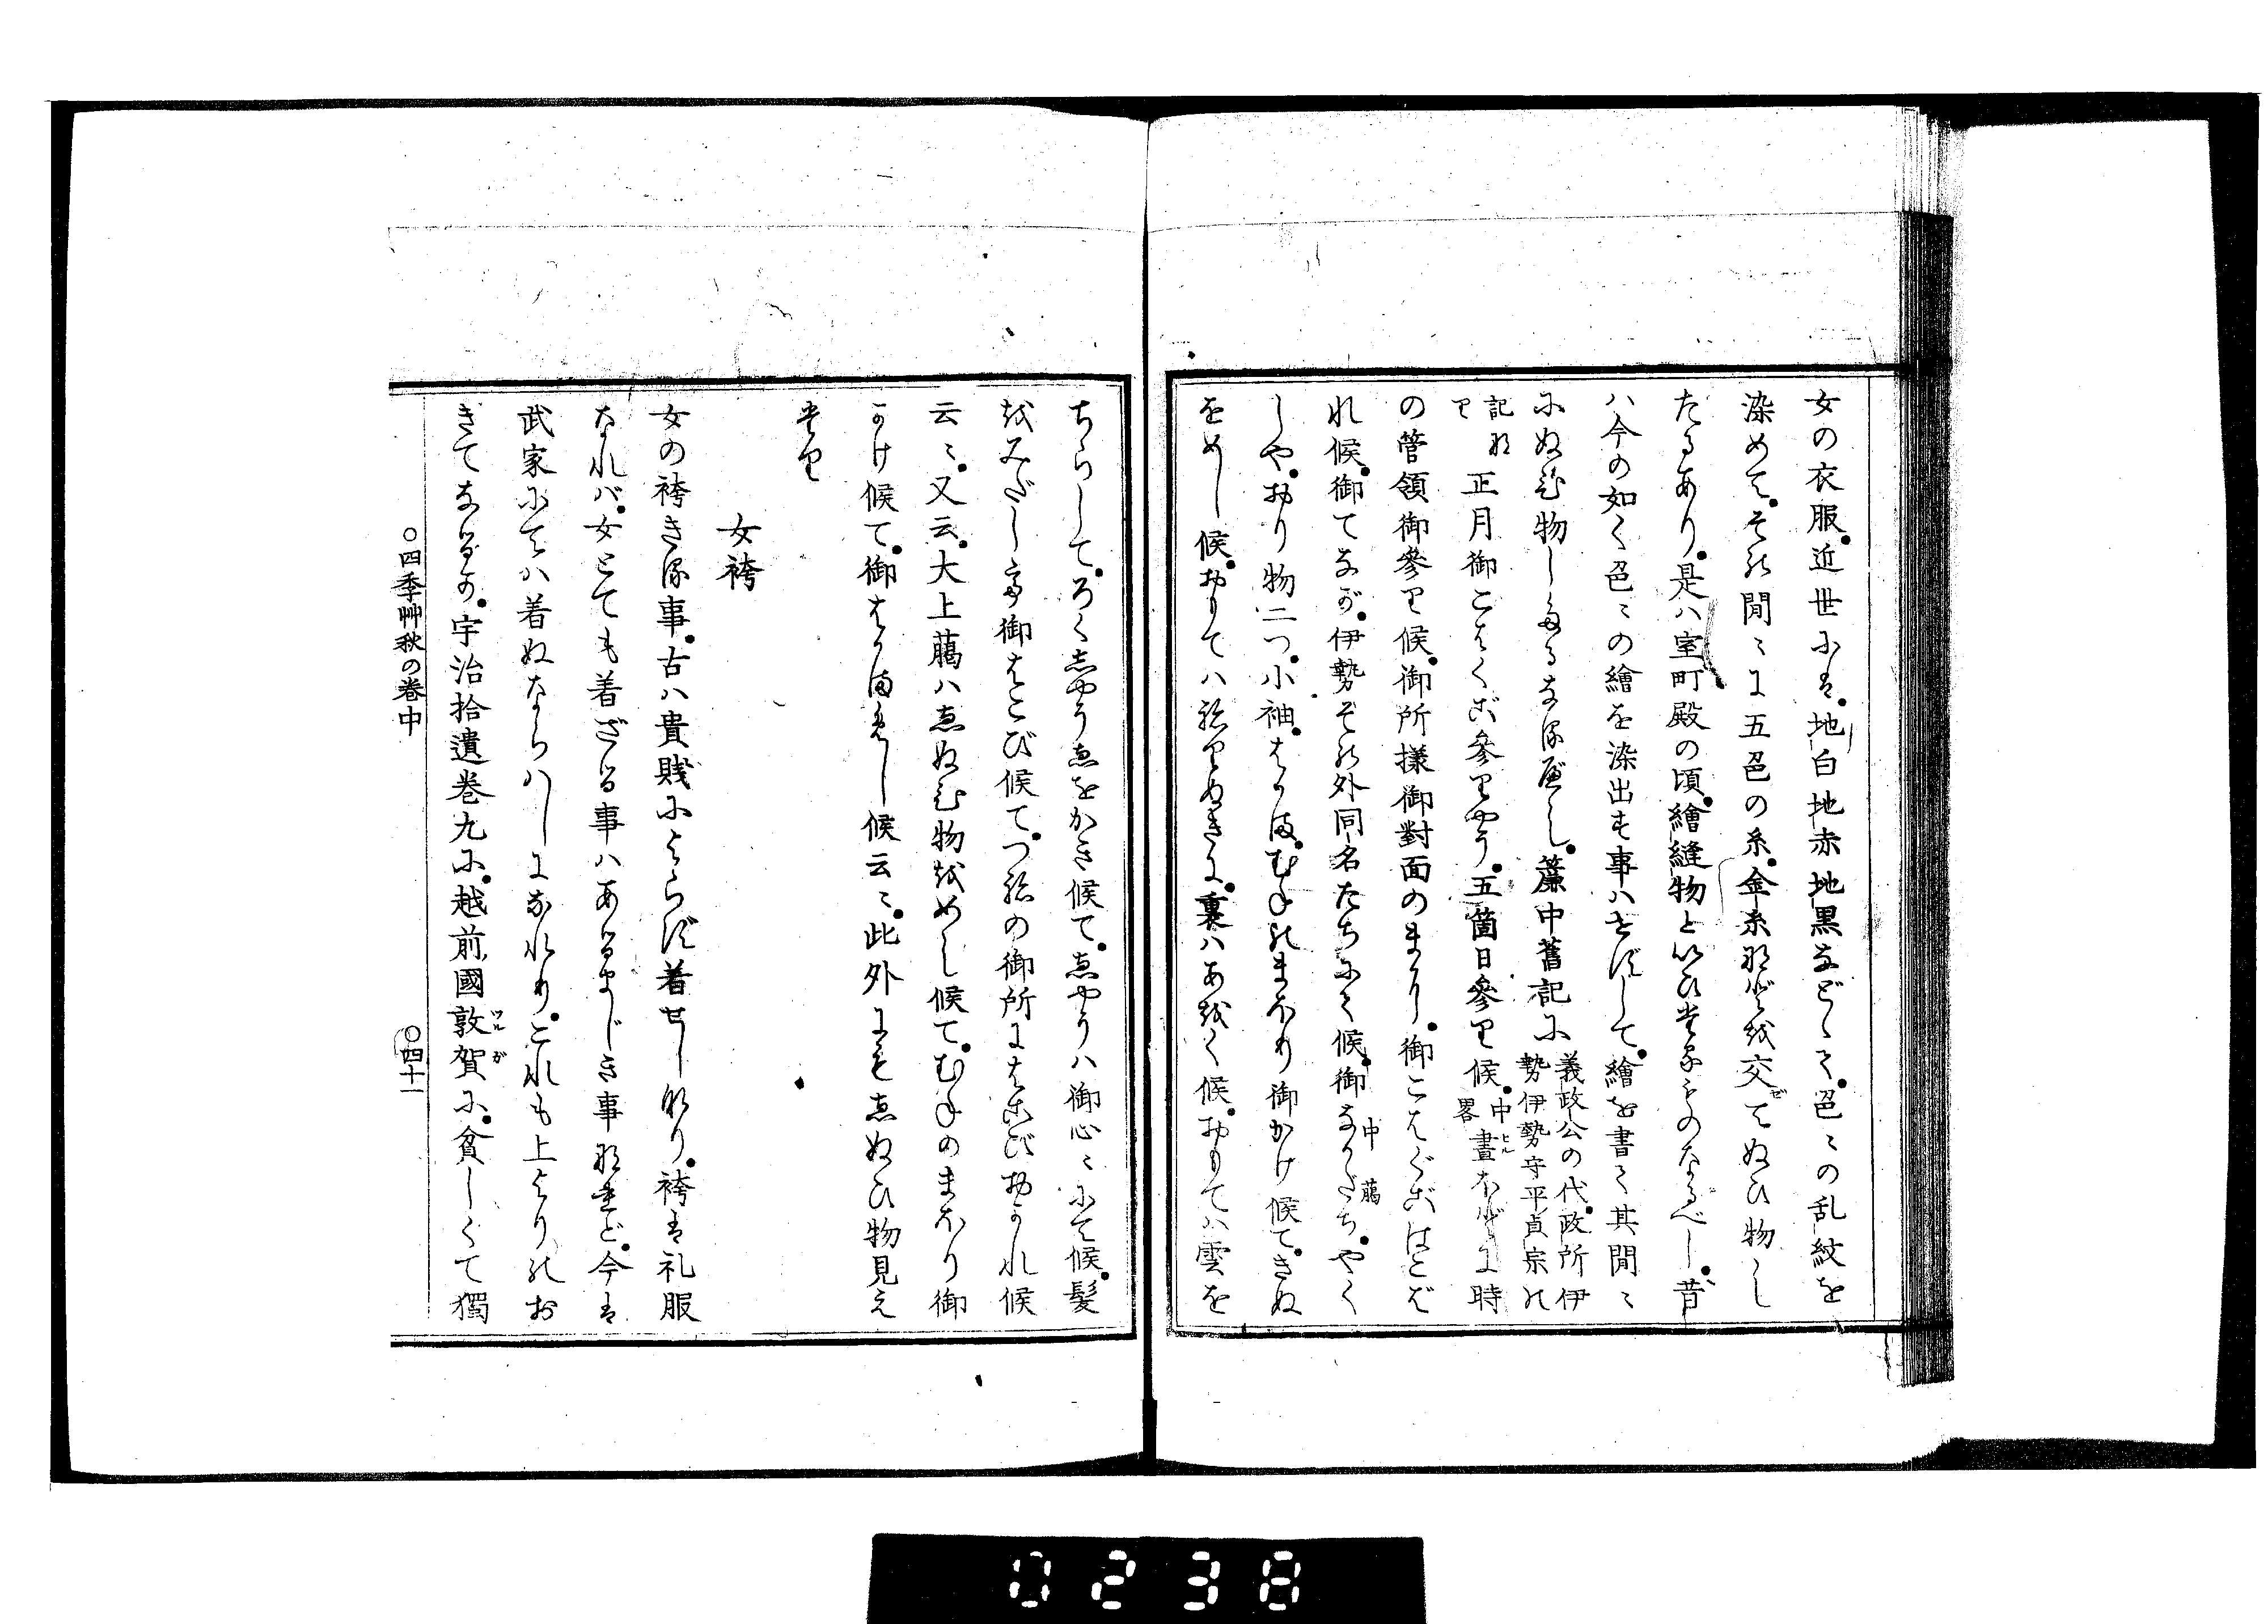 女の衣服。近世にハ。地白地赤地黒などゝて。色〻の乱紋を
染めて。その間〻に五色の糸。金糸などを交ぜてぬひ物し
たるあり。是ハ室町殿の頃。繪縫物といひたるものなるべし。昔
ハ今の如く色〻の繪を染出す事ハせずして。繪を書て其間〻
にぬひ物したるなるべし。簾中舊記に
義政公の代。政所伊
勢伊勢守平貞宗の
記な
り
正月御こはく御參りやう。五箇日參り候。
中
畧
晝ほどに時
ヒル
の管領御參り候。御所樣御對面のまへり。御こはく御はとば
れ候。御てなが。伊勢その外同名たちにて候。御なかだち。やく
中 﨟
しや。おり物二つ。小袖。はかま。むねのまもり御かけ候て。きぬ
をめし候。おもてハねりぬきに。裏ハあをく候。おもてハ雲を
ちらして。ろくしやうゑをかき候て。ゑやうハ御心〻にて候。髪
をみだし。御はこび候て。つねの御所にはこびおかれ候
云〻。又云。大上﨟ハゑぬひ物をめし候て。むねのまもり御
かけ候て。御はかまめし候云〻。此外にもゑぬひ物見え
たり
女袴
女の袴きる事。古ハ貴賤によらず着せしなり。袴は礼服
なれバ。女とても着ざる事ハあるまじき事なれど。今は
武家にてハ着ぬならハしになれり。これも上よりのお
きてなるか。宇治拾遺巻九に。越前國敦賀に。貧しくて獨
ツルガ
○四季艸秋の巻中
○四十一
0238